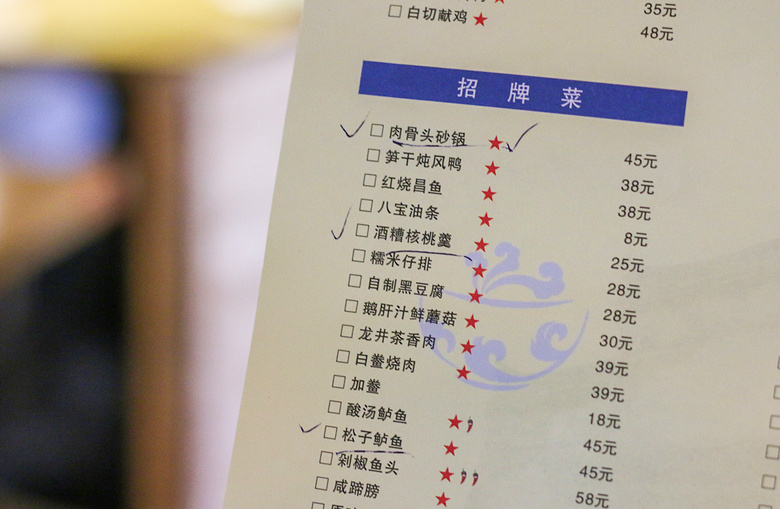 35元
白切献鸡 48元
招牌菜
肉骨头砂锅 45元
笋干炖风鸭 38元
红烧昌鱼 38元
八宝油条 8元
酒糟核桃羹 25元
糯米仔排 28元
自制黑豆腐 28元
鹅肝汁鲜蘑菇 30元
龙井茶香肉 39元
白鲞烧肉 39元
加鲞 18元
酸汤鲈鱼 45元
松子鲈鱼 45元
剁椒鱼头 58元
咸蹄膀